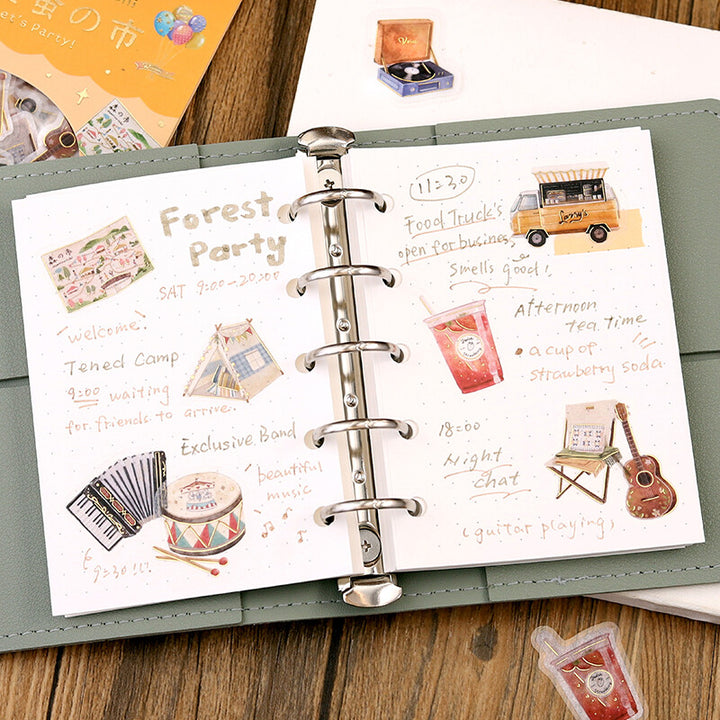 の市
et's Party!
Forest
Party
SAT 9:00-20:00
welcome!
Tened Camp
9:00 waiting
for friends to arrive.
Exclusive Band
beautiful
music
9:30
11:30
Food Truck's
open for business,
Smells good!
Afternoon
tea time
a cup of
strawberry soda
18:00
Night
chat
(guitar playing)